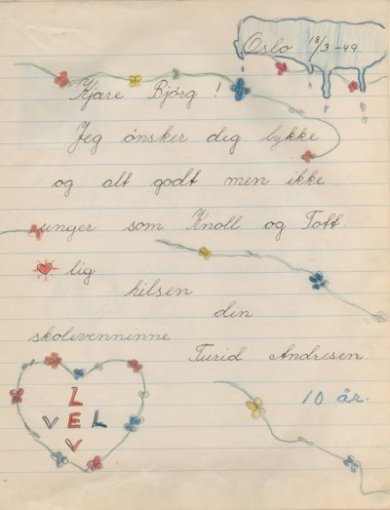 Oslo 18/3-49.
Kjære Bjørg!
Jeg ønsker deg lykke
og alt godt men ikke
unger som Knoll og Tott.
lig
hilsen
din
skolevenninne
Turid Andresen
10 år.
LEV
VEL